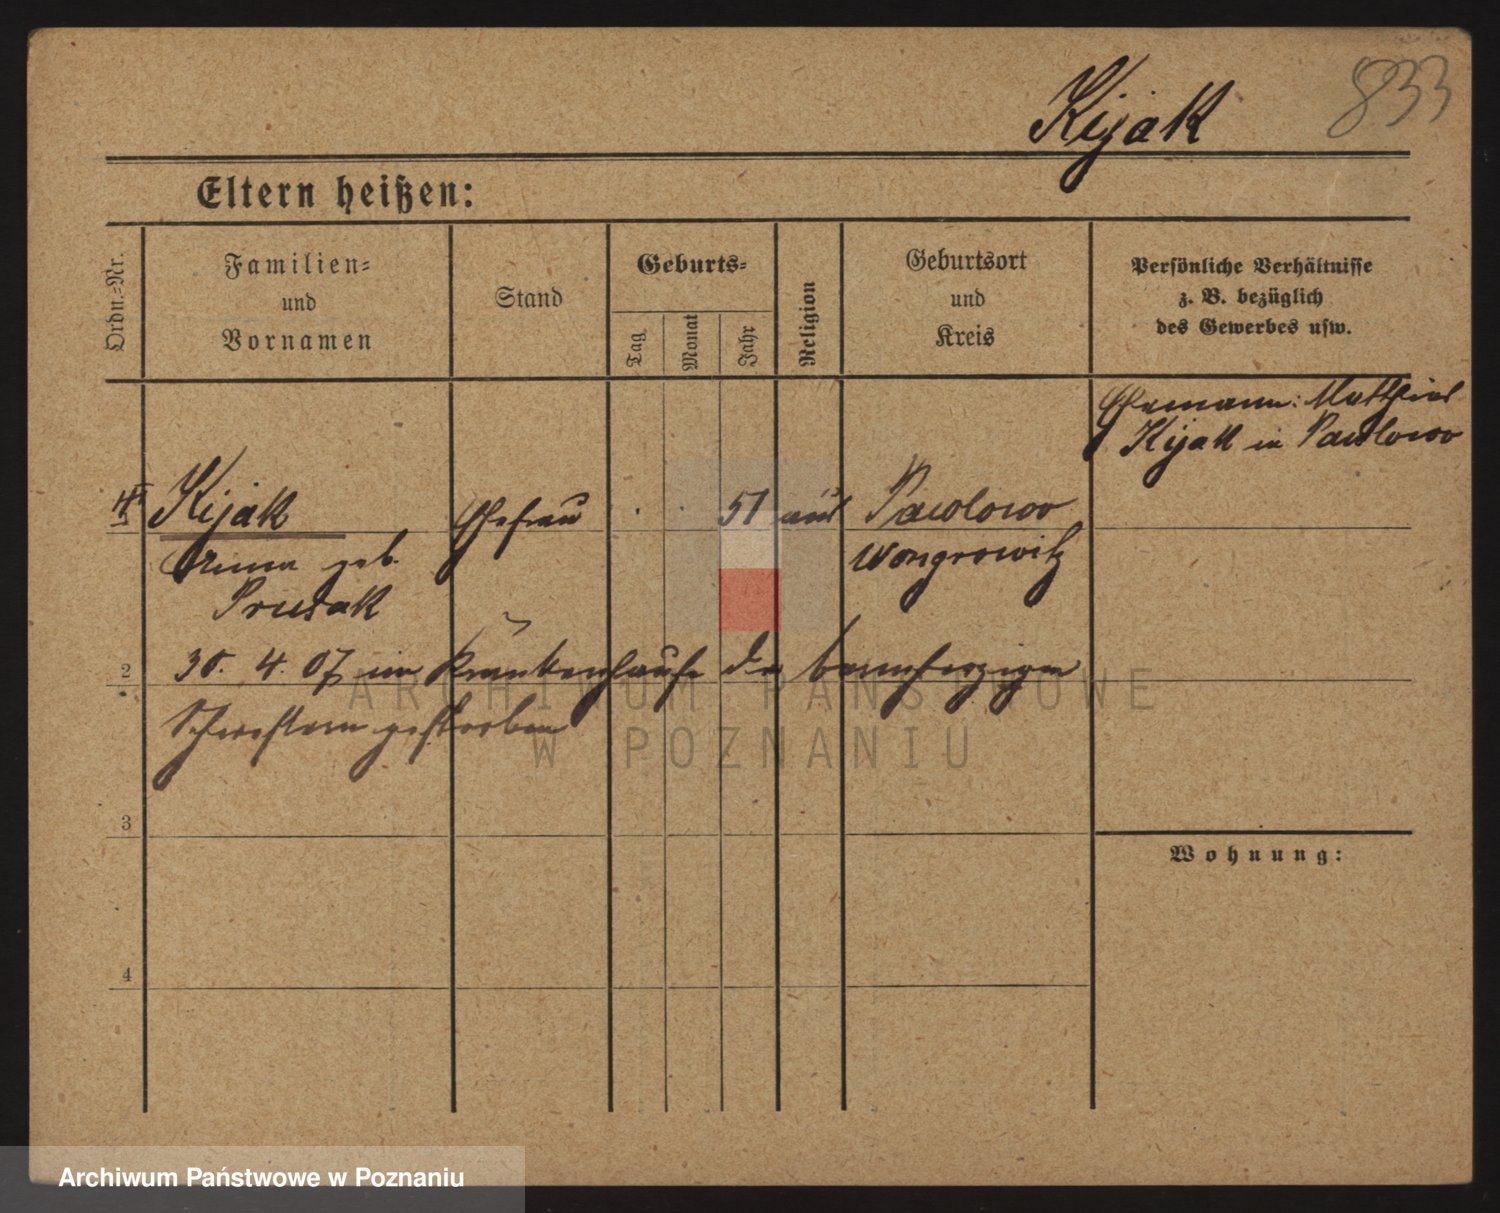 Kijak 833
Eltern heißen:
Ordn.-Nr.
Familien-
und
Vornamen
Stand
Geburts-
Tag
Monat
Jahr
Religion
Geburtsort
und
Kreis
Persönliche Verhältnisse
z. B. bezüglich
des Gewerbes usw.
Ehemann: Matthias
Kijak in Pawlowo
Kijak Ehefrau . . 51 aus Pawlowo
geb. Wongrowitz
Prusak
2 30. 4. 07 im Krankenhause der barmherzigen
Schwestern gestorben
3
Wohnung:
4
ARCHIWUM PAŃSTWOWE
W POZNANIU
Archiwum Państwowe w Poznaniu